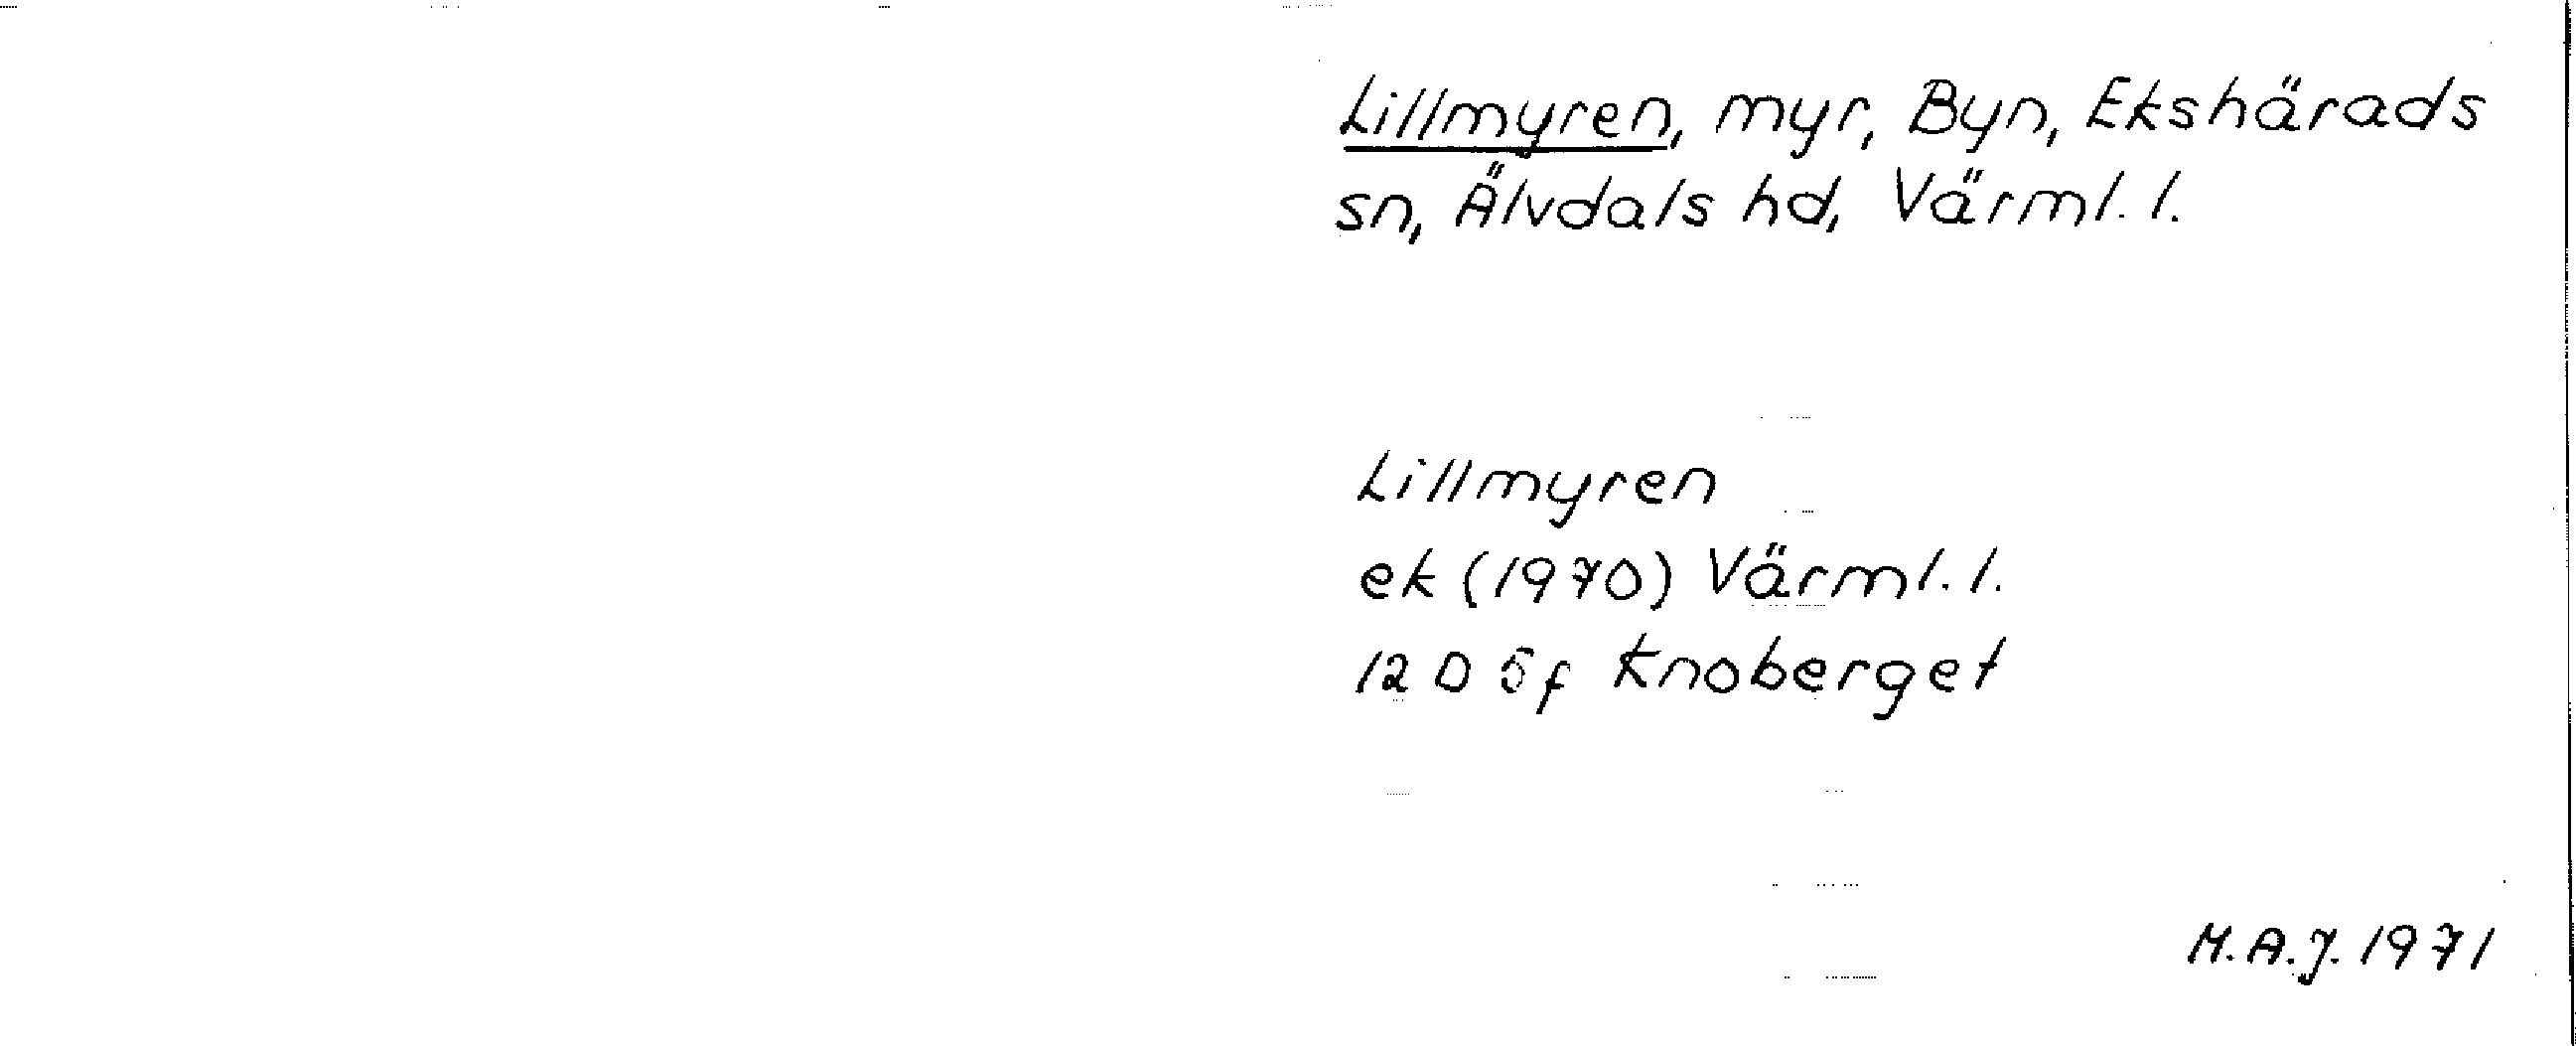 Lillmyren, myr, Byn, Ekshärads
sn, Älvdals hd, Värml. l.
Lillmyren
ek (1970) Värml. l.
12 D 5f Knoberget
M.A.J. 1971